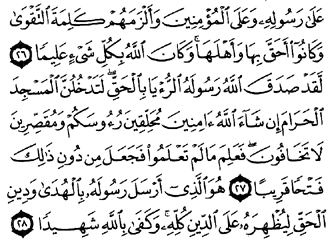 عَلَىٰ رَسُولِهِۦ وَعَلَى ٱلْمُؤْمِنِينَ وَأَلْزَمَهُمْ كَلِمَةَ ٱلتَّقْوَىٰ
وَكَانُوٓا۟ أَحَقَّ بِهَا وَأَهْلَهَا ۚ وَكَانَ ٱللَّهُ بِكُلِّ شَىْءٍ عَلِيمًا ٢٦
لَّقَدْ صَدَقَ ٱللَّهُ رَسُولَهُ ٱلرُّءْيَا بِٱلْحَقِّ ۖ لَتَدْخُلُنَّ ٱلْمَسْجِدَ
ٱلْحَرَامَ إِن شَآءَ ٱللَّهُ ءَامِنِينَ مُحَلِّقِينَ رُءُوسَكُمْ وَمُقَصِّرِينَ
لَا تَخَافُونَ ۖ فَعَلِمَ مَا لَمْ تَعْلَمُوا۟ فَجَعَلَ مِن دُونِ ذَٰلِكَ
فَتْحًا قَرِيبًا ٢٧ هُوَ ٱلَّذِىٓ أَرْسَلَ رَسُولَهُۥ بِٱلْهُدَىٰ وَدِينِ
ٱلْحَقِّ لِيُظْهِرَهُۥ عَلَى ٱلدِّينِ كُلِّهِۦ ۚ وَكَفَىٰ بِٱللَّهِ شَهِيدًا ٢٨